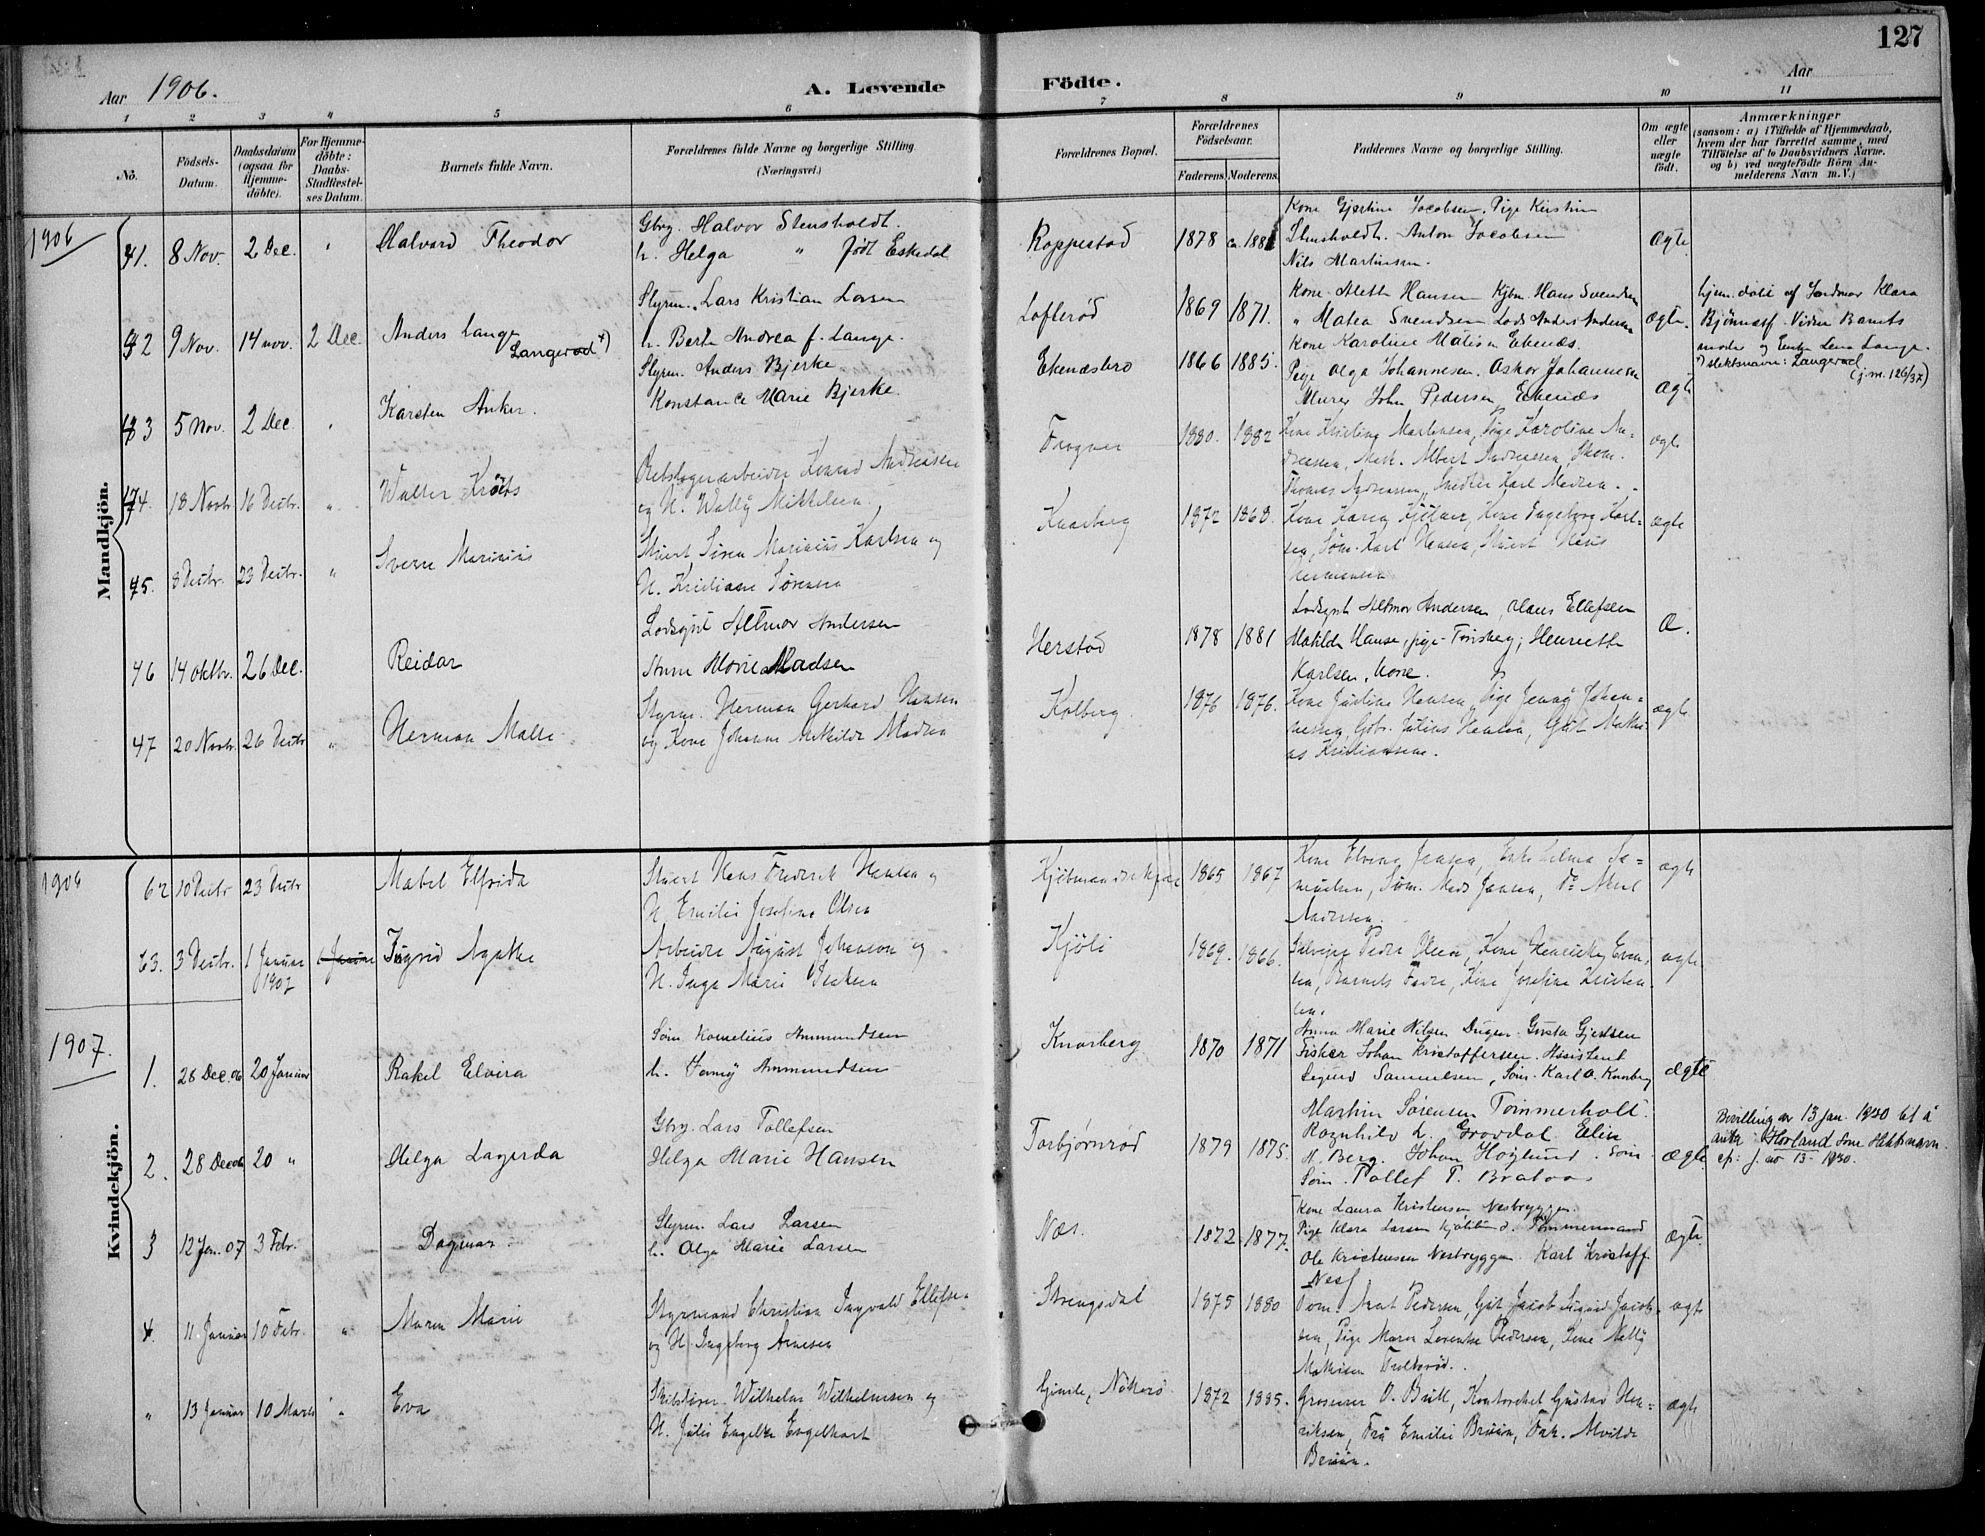 127
Aar 1906.
A. Levende Födte.
Aar
1 2 3 4 5 6 7 8 9 10 11
No.
Födsels-Datum.
Daabsdatum (ogsaa for Hjemme-döbte).
For Hjemme-döbte: Daabs-Stadfæstel-ses Datum.
Barnets fulde Navn.
Forældrenes fulde Navne og borgerlige Stilling.
(Næringsvei.)
Forældrenes Bopæl.
Forældrenes Födselsaar.
Faderens. Moderens.
Faddernes Navne og borgerlige Stilling.
Om ægte eller uægte födt.
Anmærkninger
(saasom: a) i Tilfælde af Hjemmedaab, hvem der har forrettet samme, med Tilföielse af to Daabsvidners Navne. og b) ved uægtefödte Börn An-melderens Navn m. V.)
Mandkjön.
1906
41. 8 Nov. 2 Dec. " Halvard Theodor
Gbrg. Halvor Stensholdt.
h. Helga " født Eskedal
Roppestad 1878
Kone Gjertine Jacobsen. Pige Kirstin
Stensholdt. Anton Jacobsen
Nils Martinsen.
ægte.
42 9 Nov. 14 nov. 2 Dec. Anders Lange
Langerød *)
Styrm. Lars Kristian Larsen
h. Berte Andrea f. Lange.
Lofterød 1869 1871.
Kone Mette Hansen Kjbm. Hans Svendsen
" Matea Svendsen Lods Anders Andersen
Kone Karoline Ekenæs.
ægte.
hjem. døbt af Jordmor Klara
*) slektsnavn: Langerød
(j.m. 126/37)
43 5 Nov. 2 Dec. " Karsten Anker.
Styrm. Anders Bjerke
Konstance Marie Bjerke.
Ekenæsbro 1866 1885.
Pige Olga Johannesen. Oskar Johannesen
Murer John Pedersen, Ekenæs
ægte
44. 18 Novbr. 16 Decbr. "
Rebslagerarbeider Konrad Andreasen
og H. Wally Mikkelsen.
Frogner 1880. 1882
Kone Kristine Martinsen, Pige Karoline An-
dreasen, Mask. Albert Andreasen, Skom.
Thomas Andreasen, Snedker Karl Madsen.
ægte
45. 8 Decbr. 23 Decbr. " Sverre Marinius
Stuert Søren Marinius Karlsen og
H. Kristiane Sørensen
Knarberg 1872 1868.
Kone Karen Kjølner, Kone Ingeborg Karl-
sen, Søm. Karl Hansen, Stuert Hans
Hermansen
ægte
46 14 oktbr. 26 Dec. Reidar
Lodsgut Hilmar Andersen
Anne Marie Madsen
Herstad 1878 1881
Lodsgut Hilmar Andersen, Hans Ellefsen
Matilde Hanse, pige Tønsberg; Henriette
Karlsen, Kone.
Æ.
47 20 Novbr. 26 Decbr " Herman
Styrm. Herman Gerhard Hansen
og Kone Johanne Mathilde Madsen
Kolberg. 1876 1876.
Kone Justine Hansen, Pige Jenny Johan-
nessen, Gbr. Julius Hansen, Gut Mathi-
as Kristiansen.
ægte
Kvindekjön.
1906
62 10 Decbr 23 Decbr Mabel Elfrida
Stuert Hans Fredrik Hansen og
H. Emilie Josefine Olsen
1865 1867
Kone Elvine Jensen, Enke Selma Sa-
muelsen, Søm. Mads Jansen, Do Aksel
Andersen.
ægte
63. 3 Decbr. 1 Januar 1907 Ingrid Agathe
Arbeider August Johansen og
H. Inga Marie
Kjöli 1869. 1866.
Selveier Peder Olsen, Kone Henrikke Even-
sen, Barnets Fader, Kone Josefine Kristen-
sen.
ægte.
1907.
1. 28 Dec. 06 20 Januar Rakel Elvira
Søm. Kornelius Ammundsen
h. Fanny Ammundsen
Knarberg 1870 1871
Anna Marie Nilsen Dugen. Gusta Gjertsen
Fisker Johan Kristoffersen. Assistent
Sigurd Samuelsen, Søm. Karl O. Knarberg
ægte
2. 28 Dec 06 20 " Helga Lagerda
Gbrg. Lars Tollefsen
Helga Marie Hansen
Torbjørnrød 1879 1875.
Martin Sørensen Tømmerholt.
Ragnhild L. Grovdal. Elin
M. Berg. Johan Høglund. Søm
Søm. Tollef T. Brataas
ægte
Bevilling av 13 jan. 1930 til å
anta Hovland som slektsnavn.
cfr: j. no 13 - 1930.
3 12 Jan. 07 3 Febr. Dagmar.
Styrm. Lars Larsen
h. Olga Marie Larsen
Næs. 1872 1877.
Kone Laura Kristensen Nesbryggen.
Pige Klara Larsen Tømmermand
Ole Kristensen Nesbryggen. Karl Kristoff.
Næs
ægte.
4. 11. Januar 10 Febr. " Maren Marie
Styrmand Christian Ingvald Ellefsen
og H. Ingeborg Arnesen
Strengsdal 1875 1880
Tøm. Knut Pedersen, Gut Jacob Sigurd Jacob-
sen, Pige Maren Lorentse Pedersen, Nelly
Mathisen
ægte
" 13 Januar 10 Marts " Eva
Skibsfører Wilhelm Wilhelmsen og
H. Julie Engelke Engelhart
Gimle, Nøtterø 1872 1885.
Grosserer O. Bull, Kontorchef Gustav Hen-
riksen, Fru Emilie Bruun, Frk. Alvilde
Bruun.
ægte